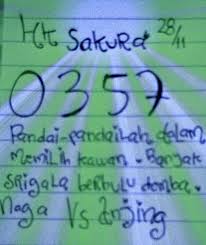 HK SAKURA 28/11
0357
Pandai-pandailah dalam
memilih kawan. Banyak
srigala berbulu domba.
naga Vs Anjing